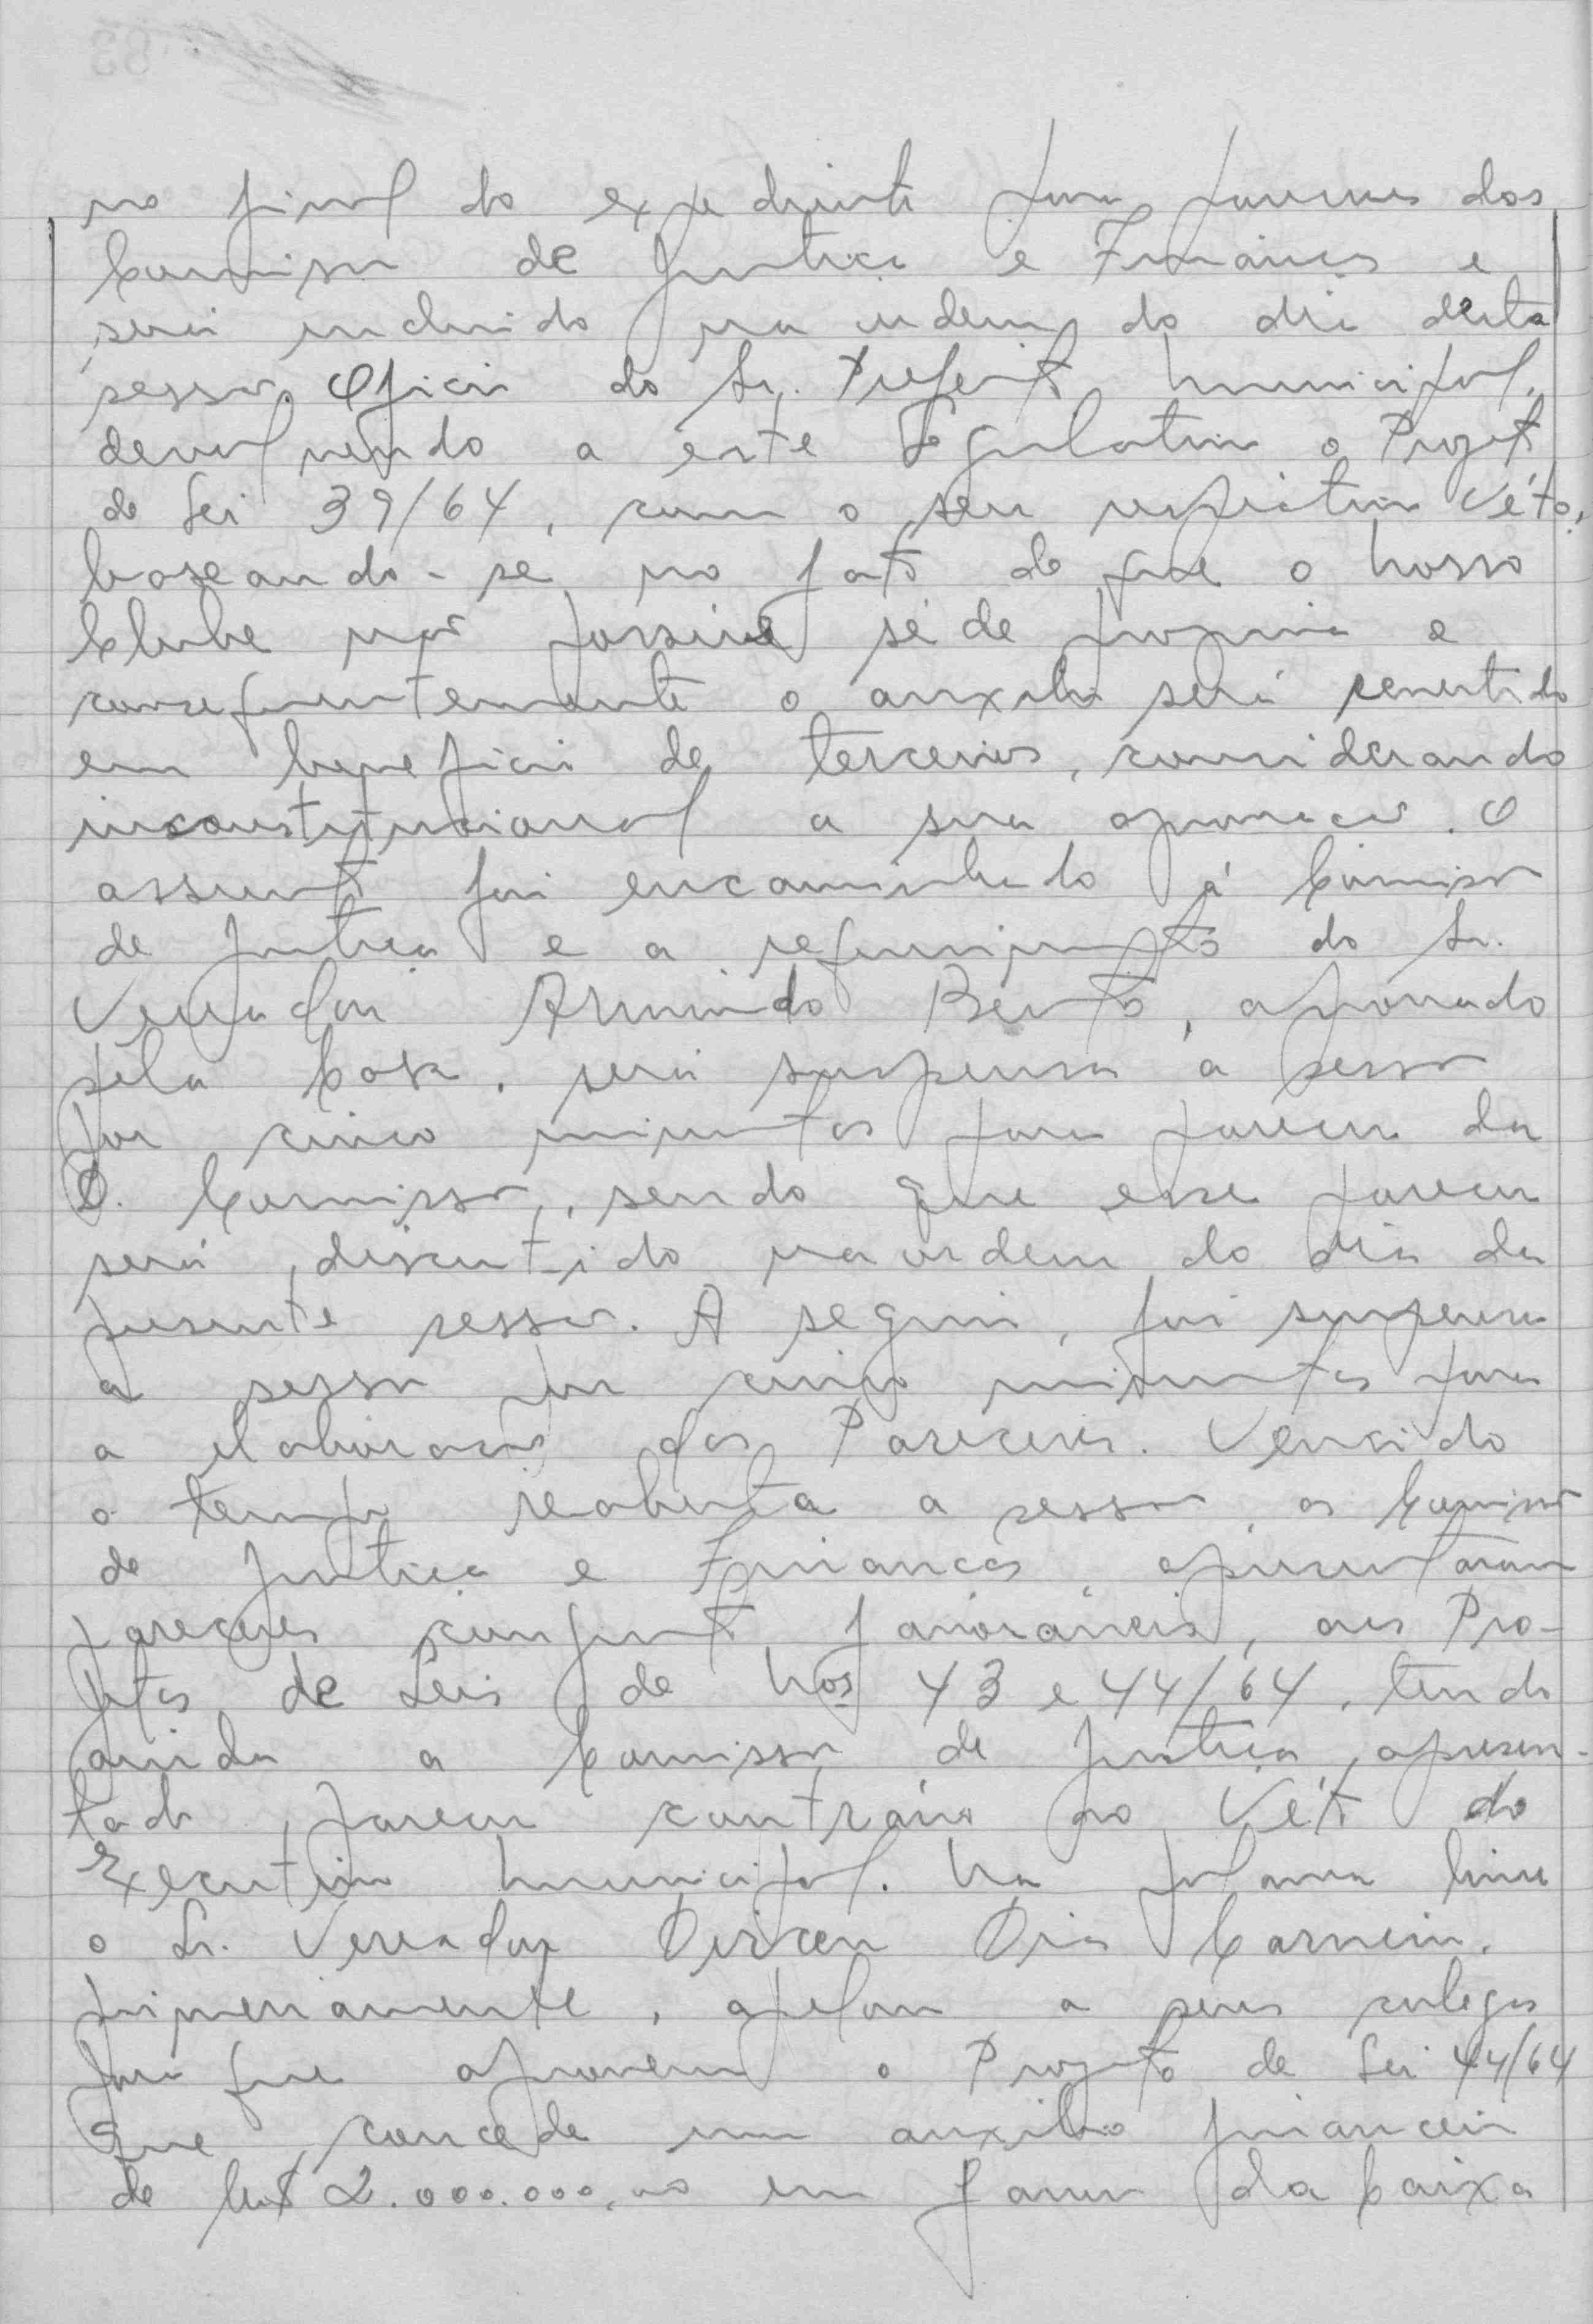 no final do expediente para pareceres dos
Comissão de Justiça e Finanças e
será incluido na ordem do dia desta
sessão. Oficio do Sr. Prefeito Municipal,
devolvendo a este Legislativo o Projeto
de Lei 39/64, com o seu respectivo Véto,
baseando-se no fato de que o Nosso
Clube não possuie séde propria e
consequentemente o auxilio será revertido
em beneficio de terceiros, considerando
inconstitucional a sua aprovação. O
assunto foi encaminhado á Comissão
de Justiça e a requerimento do Sr.
Vereador Armindo Bento, aprovado
pela Casa, será suspensa a sessão
por cinco minutos para parecer da
D. Comissão, sendo que esse parecer
será discutido na ordem do dia da
presente sessão. A seguir, foi suspensa
a sessão por cinco minutos para
a elaboração dos Pareceres. Vencido
o tempo reaberta a sessão, as Comissão
de Justiça e Finanças, apresentaram
pareceres conjunto favoráveis, aos Pro-
jetos de Leis de Nos. 43 e 44/64, tendo
ainda a Comissão de Justiça, apresen-
tado parecer contrário ao Véto do
Executivo Municipal. Na palavra livre
o Sr. Vereador Dirceu Dias Carneiro,
primeiramente, apelou a seus colegas
para que aprovem o Projeto de Lei 44/64
que concede um auxilio financeiro
de Cr$ 2.000.000,00 em favor da Caixa